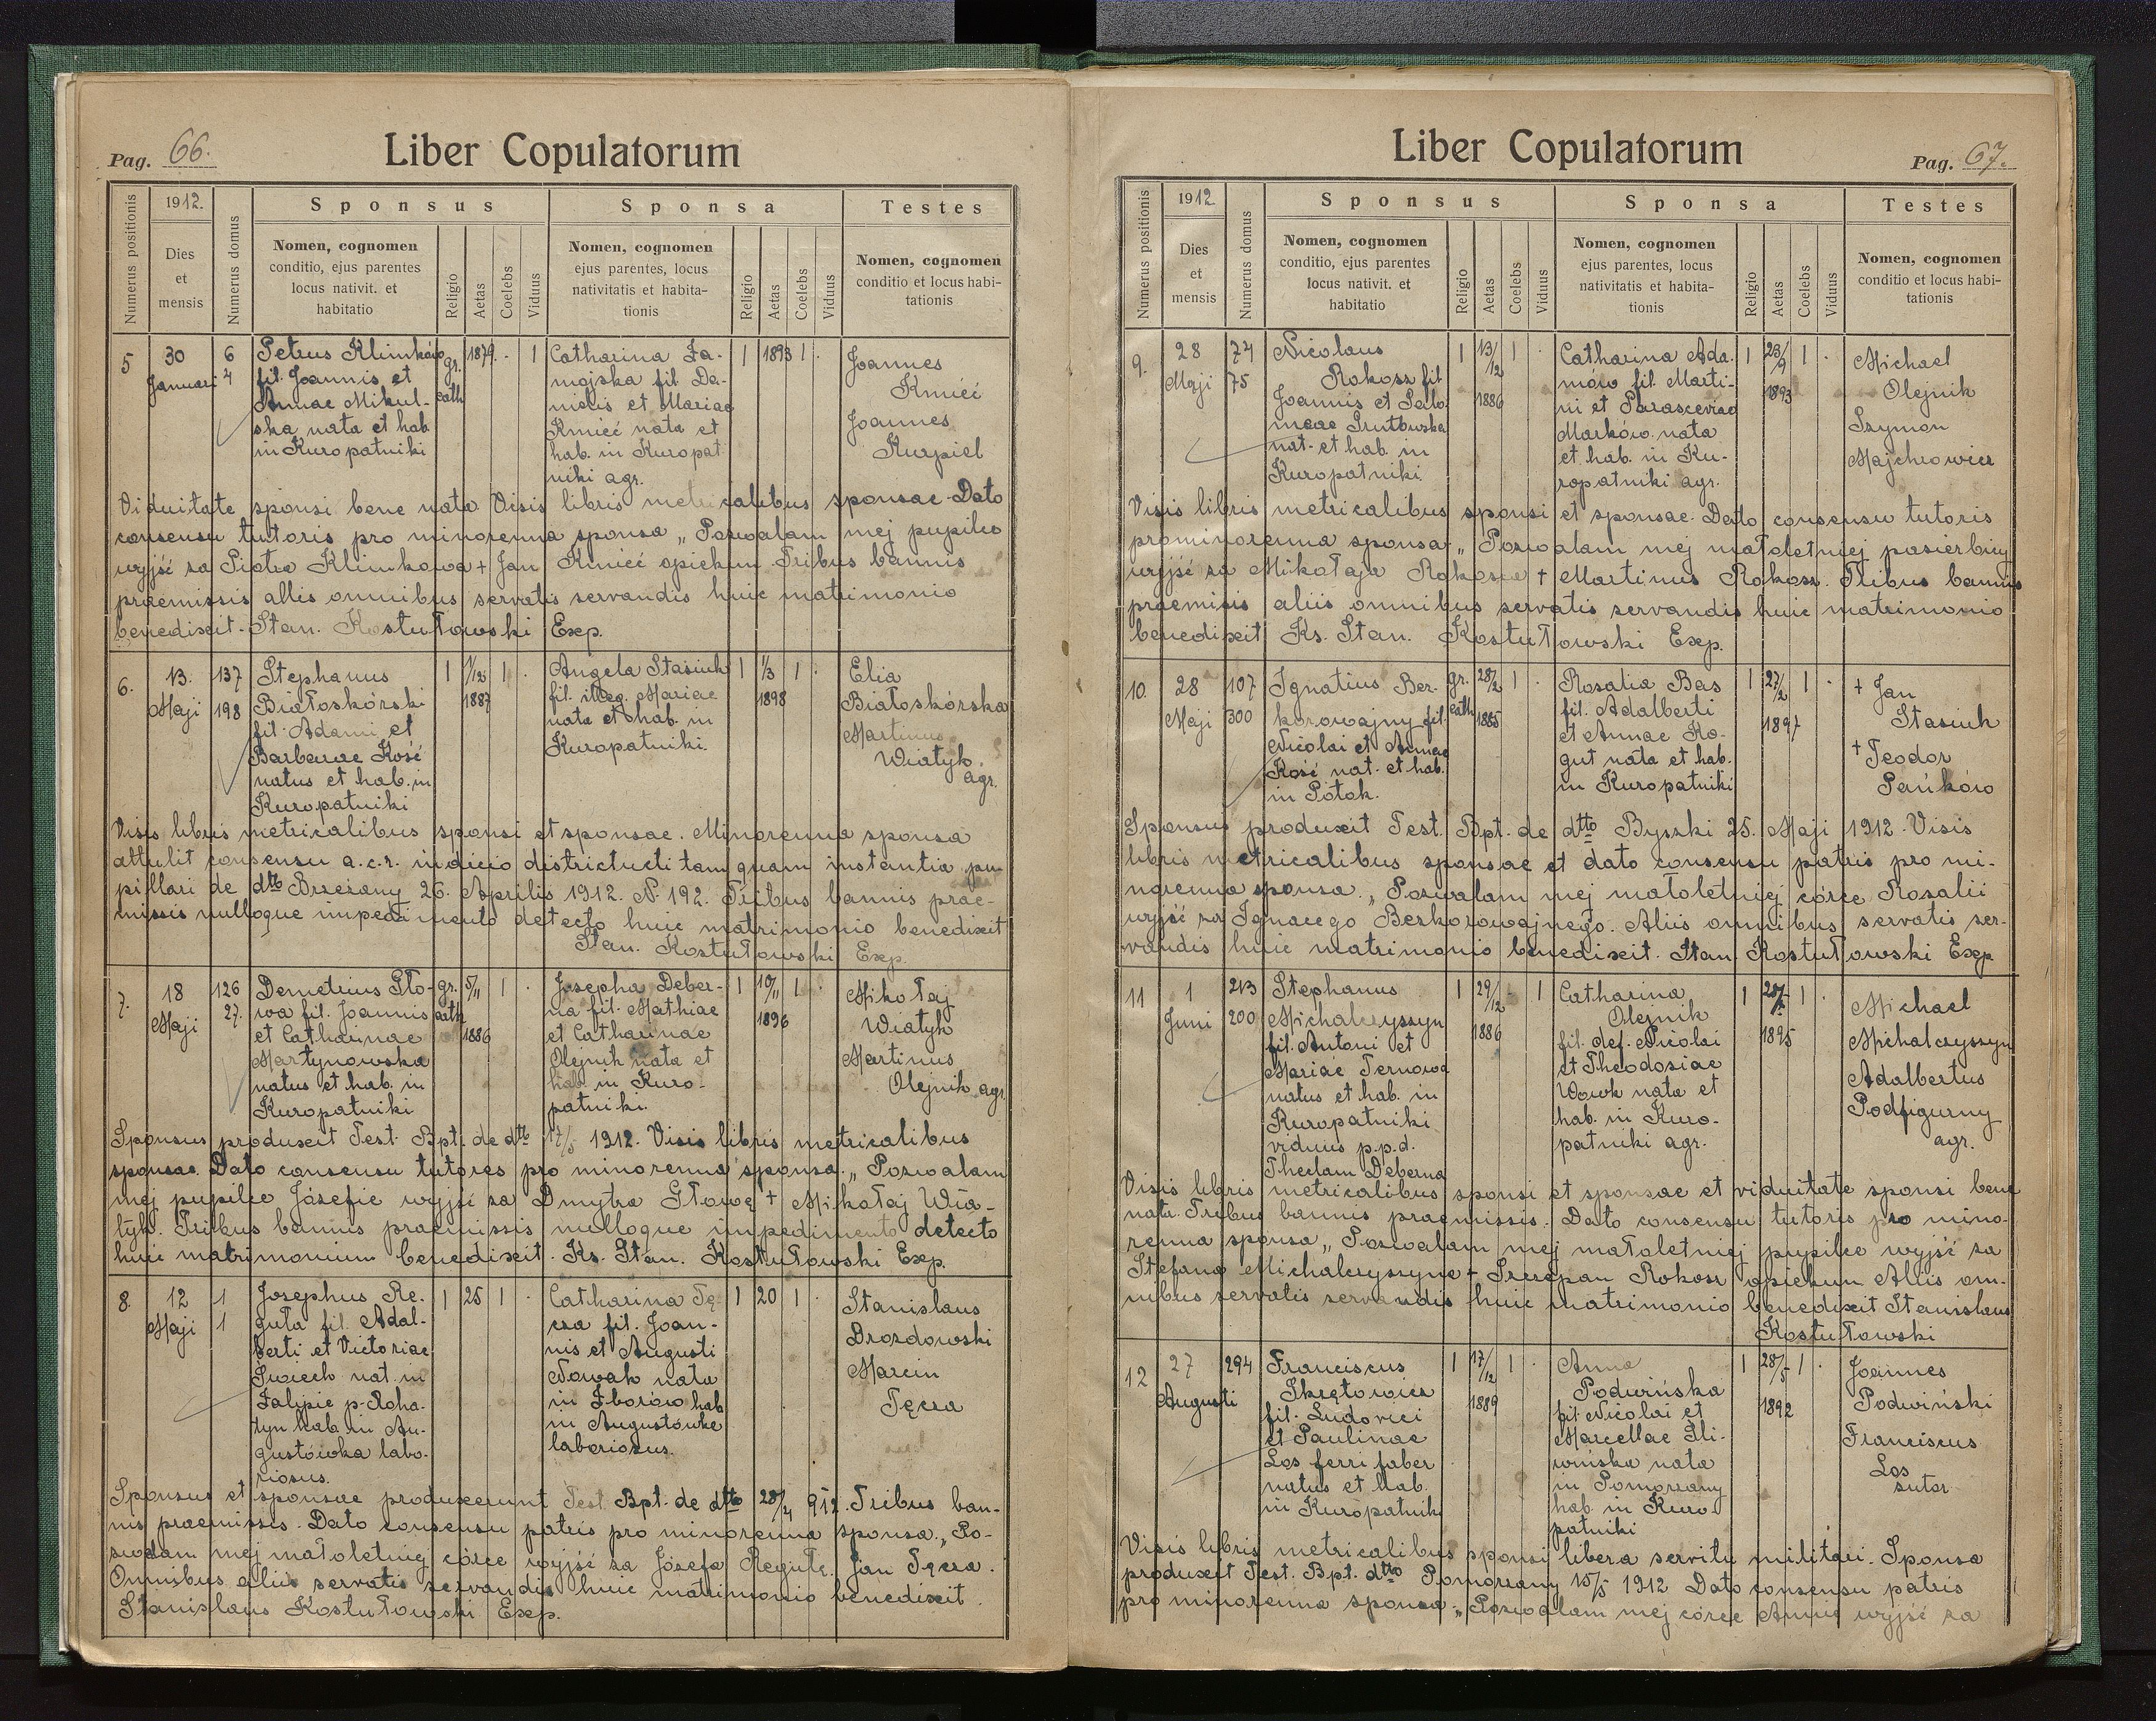 Pag. 66.
Liber Copulatorum
Numerus positionis
1912.
Dies
et
mensis
Numerus domus
Sponsus
Nomen, cognomen
conditio, ejus parentes
locus nativit. et
habitatio
Religio
Aetas
Coelebs
Viduus
Sponsa
Nomen, cognomen
ejus parentes, locus
nativitatis et habita-
tionis
Religio
Aetas
Coelebs
Viduus
Testes
Nomen, cognomen
conditio et locus habi-
tationis
5
30
Januari
6
4
Petrus Klimków
fil. Joannis et
Annae Mikul-
ska nata et hab.
in Kuropatniki
gr.
cath
1879.
·
1
Catharina Za-
mojska fil. Da-
nielis et Mariae
Kmieć nata et
hab. in Kuropat
niki agr.
1
1893
1
·
Joannes
Kmieć
Joannes
Kurpiel
Viduitate sponsi bene nata Visis libris metricalibus sponsae Dato
consensu tutoris pro minorenna sponsa „Pozwalam mej pupilce
wyjść za Piotra Klimkowa + Jan Kmieć opiekun. Tribus bannis
praemissis allis omnibus servatis servandis huic matrimonio
benedixit - Stan. Kostułowski Exp.
6.
13.
Maji
137
198
Stephanus
Białoskórski
fil. Adami et
Barbarae Kość
natus et hab. in
Kuropatniki
1
1/12
1887
1
·
Angela Stasiuk
fil. illeg. Mariae
nata et hab. in
Kuropatniki.
1
1/3
1898
1
·
Elia
Białoskórska
Martinus
Wiatyk.
agr.
Visis libris metricalibus sponsi et sponsae. Minorenna sponsa
attulit consensu a.c.r. indicio districtucti tam quam instantia pu-
pillari de dtto Brzeżany 26. Aprilis 1912. N. 192. Tribus bannis prae-
missis nulloque impedimento detecto huic matrimonio benedixit
Stan. Kostułowski Exp.
7.
18
Maji
126
27.
Demetrius Gło-
wa fil. Joannis
et Catharinae
Martynowska
natus et hab. in
Kuropatniki
gr.
cath
5/11
1886
1
·
Josepha Deber-
na fil. Mathiae
et Catharinae
Olejnik nata et
hab. in Kuro-
patniki.
1
10/11
1896
1
·
Mikołaj
Wiatyk
Martinus
Olejnik agr.
Sponsus produxit Test. Bpt. de dtto 17/5 1912. Visis libris metricalibus
sponsae. Dato consensu tutores pro minorenna sponsa. „Pozwalam
mej pupilce Józefie wyjść za Dmytra Głowę + Mikołaj Wia-
tyk. Tribus bannis praemissis nulloque impedimento detecto
huic matrimonium benedixit. Ks. Stan. Kostułowski Exp.
8.
12
Maji
1
1
Josephus Re-
guła fil. Adal-
berti et Victoriae
Surech nat. in
Zalipie p. Roha-
tyn hab. in Au-
gustówka labo-
riosus.
1
25
1
·
Catharina Tę-
cza fil. Joan-
nis et Augusti
Nowak nata
in Zborów hab.
in Augustówke
laboriosus.
1
20
1
·
Stanislaus
Drozdowski
Marcin
Tęcza
Sponsus et sponsae produxerunt Test. Bpt. de dtto 28/4 912. Tribus ban-
nis praemissis. Dato consensu patris pro minorenna sponsa. „Po-
zwalam mej małoletniej córce wyjść za Józefa Regułę. Jan Tęcza.
Omnibus aliis servatis servandis huic matrimonio benedixit.
Stanislaus Kostułowski Exp.
Liber Copulatorum
Pag. 67.
Numerus positionis
1912
Dies
et
mensis
Numerus domus
Sponsus
Nomen, cognomen
conditio, ejus parentes
locus nativit. et
habitatio
Religio
Aetas
Coelebs
Viduus
Sponsa
Nomen, cognomen
ejus parentes, locus
nativitatis et habita-
tionis
Religio
Aetas
Coelebs
Viduus
Testes
Nomen, cognomen
conditio et locus habi-
tationis
9.
28
Maji
74
75
Nicolaus
Rokosz fil.
Joannis et Salo-
meae
nat. et hab. in
Kuropatniki.
1
13/12
1886
1
·
Catharina Ada-
mów fil. Marti-
ni et Parasceviae
Marków nata
et hab. in Ku-
ropatniki agr.
1
23/9
1893
1
·
Michael
Olejnik
Szymon
Majcherowicz
Visis libris metricalibus sponsi et sponsae. Dato consensu tutoris
prominorenna sponsa. „Pozwalam mej małoletniej pasierbicy
wyjść za Mikołaja Rokosza + Martinus Rokosz. Tribus bannis
praemisis aliis omnibus servatis servandis huic matrimonio
benedixit Ks. Stan. Kostułowski Exp.
10.
28
Maji
107
300
Ignatius Ber-
korowajny fil.
Nicolai et Annae
Kość nat. et hab.
in Potok.
gr.
cath
28/2
1885
1
·
Rosalia Bas
fil. Adalberti
et Annae Ko-
gut nata et hab.
in Kuropatniki
1
27/2
1897
1
·
+ Jan
Stasiuk
+ Teodor
Pańków
Sponsus produxit Test. Bpt. de dtto Byszki 25. Maji 1912. Visis
libris metricalibus sponsae et dato consensu patris pro mi-
norenna sponsa. „Pozwalam mej małoletniej córce Rozalii
wyjść za Ignacego Berkorowajnego. Aliis omnibus servatis ser-
vandis huic matrimonio benedixit. Stan. Kostułowski Exp
11
1
Juni
213
200
Stephanus
Michalczyszyn
fil. Antoni et
Mariae Ternowa
natus et hab. in
Kuropatniki
viduus p.p.d.
Theclam Deberna
1
29/12
1886
1
Catharina
Olejnik
fil. def. Nicolai
et Theodosiae
Wowk nata et
hab. in Kuro-
patniki agr.
1
1895
1
·
Michael
Michalczyszyn
Adalbertus
Podfigurny
agr.
Visis libris metricalibus sponsi et sponsae et viduitate sponsi bene
nata. Tribus bannis praemissis. Dato consensu tutoris pro mino-
renna sponsa „Pozwalam mej małoletniej pupilce wyjść za
Stefana Michalczyszyna + Szczepan Rokosz opiekun Aliis om-
nibus servatis servandis huic matrimonio benedixit Stanislaus
Kostułowski
12
27
Augusti
294
Franciscus
Skrętowicz
fil. Ludovici
et Paulinae
Los ferri faber
natus et hab.
in Kuropatnik
1
17/12
1889
1
·
Anna
Podwińska
fil. Nicolai et
Marcellae Śli-
wińska nata
in Pomorzany
hab. in Kuro-
patniki
1
28/5
1892
1
·
Joannes
Podwiński
Franciscus
Los
sutor
Visis libris metricalibus sponsi libera servitu militari. Sponsa
produxit Test. Bpt. dtto Pomorzany 15/5 1912 Dato consensu patris
pro minorenna sponsa. „Pozwalam mej córce Annie wyjść za